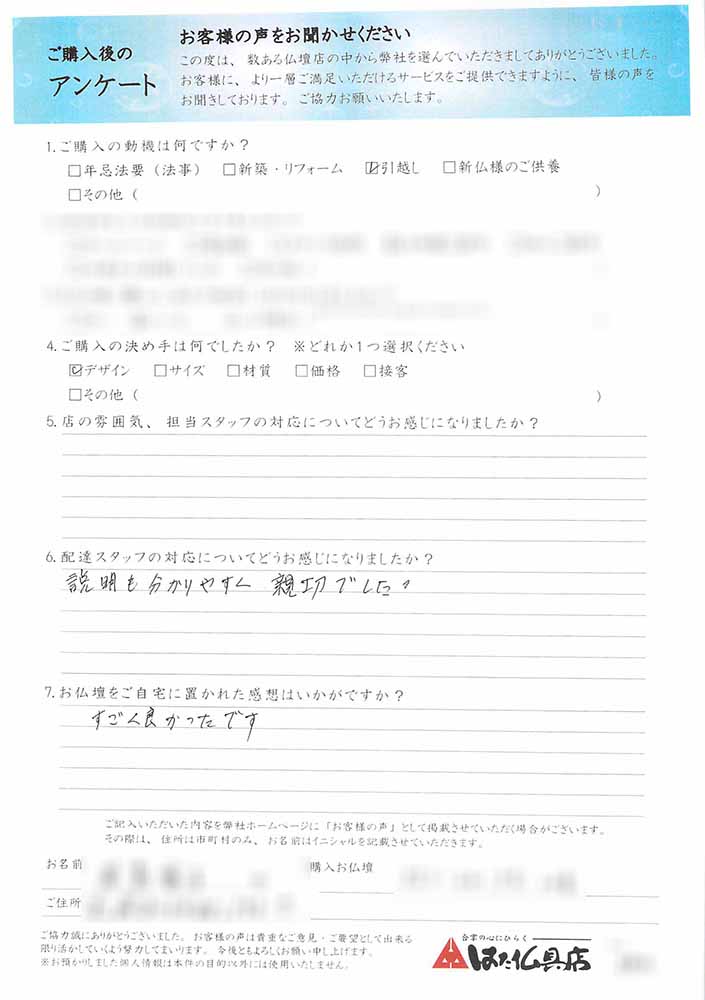 ご購入後の
アンケート
お客様の声をお聞かせください
この度は、数ある仏壇店の中から弊社を選んでいただきましてありがとうございました。
お客様に、より一層ご満足いただけるサービスをご提供できますように、皆様の声を
お聞きしております。ご協力お願いいたします。
1.ご購入の動機は何ですか？
□年忌法要(法事) □新築・リフォーム ☑引越し □新仏様のご供養
□その他 ( )
4.ご購入の決め手は何でしたか？ ※どれか1つ選択ください
☑デザイン □サイズ □材質 □価格 □接客
□その他 ( )
5.店の雰囲気、担当スタッフの対応についてどうお感じになりましたか？
6.配達スタッフの対応についてどうお感じになりましたか？
説明も分かりやすく 親切でした。
7.お仏壇をご自宅に置かれた感想はいかがですか？
すごく良かったです
ご記入いただいた内容を弊社ホームページに「お客様の声」として掲載させていただく場合がございます。
その際は、住所は市町村のみ、お名前はイニシャルを記載させていただきます。
お名前 購入お仏壇
ご住所
ご協力誠にありがとうございました。お客様の声は貴重なご意見・ご要望として出来る
限り活かしていくよう努力してまいります。今後ともよろしくお願い申し上げます。
※お預かりしました個人情報は本件の目的以外には使用いたしません。
合掌の心にひらく
はた仏具店